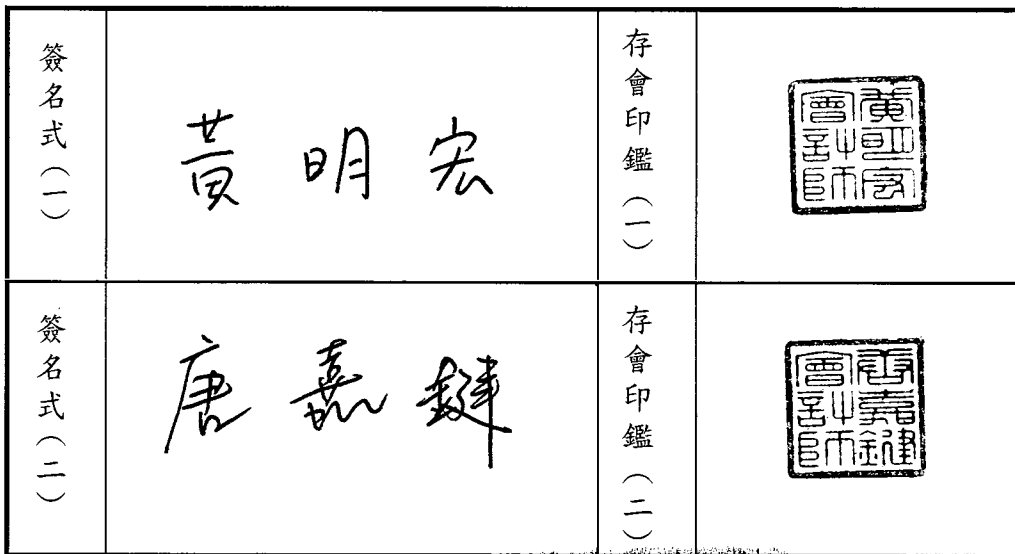 簽名式(一)
黃明宏
存會印鑑(一)
黃明宏
會計師
簽名式(二)
唐嘉鍵
存會印鑑(二)
唐嘉鍵
會計師